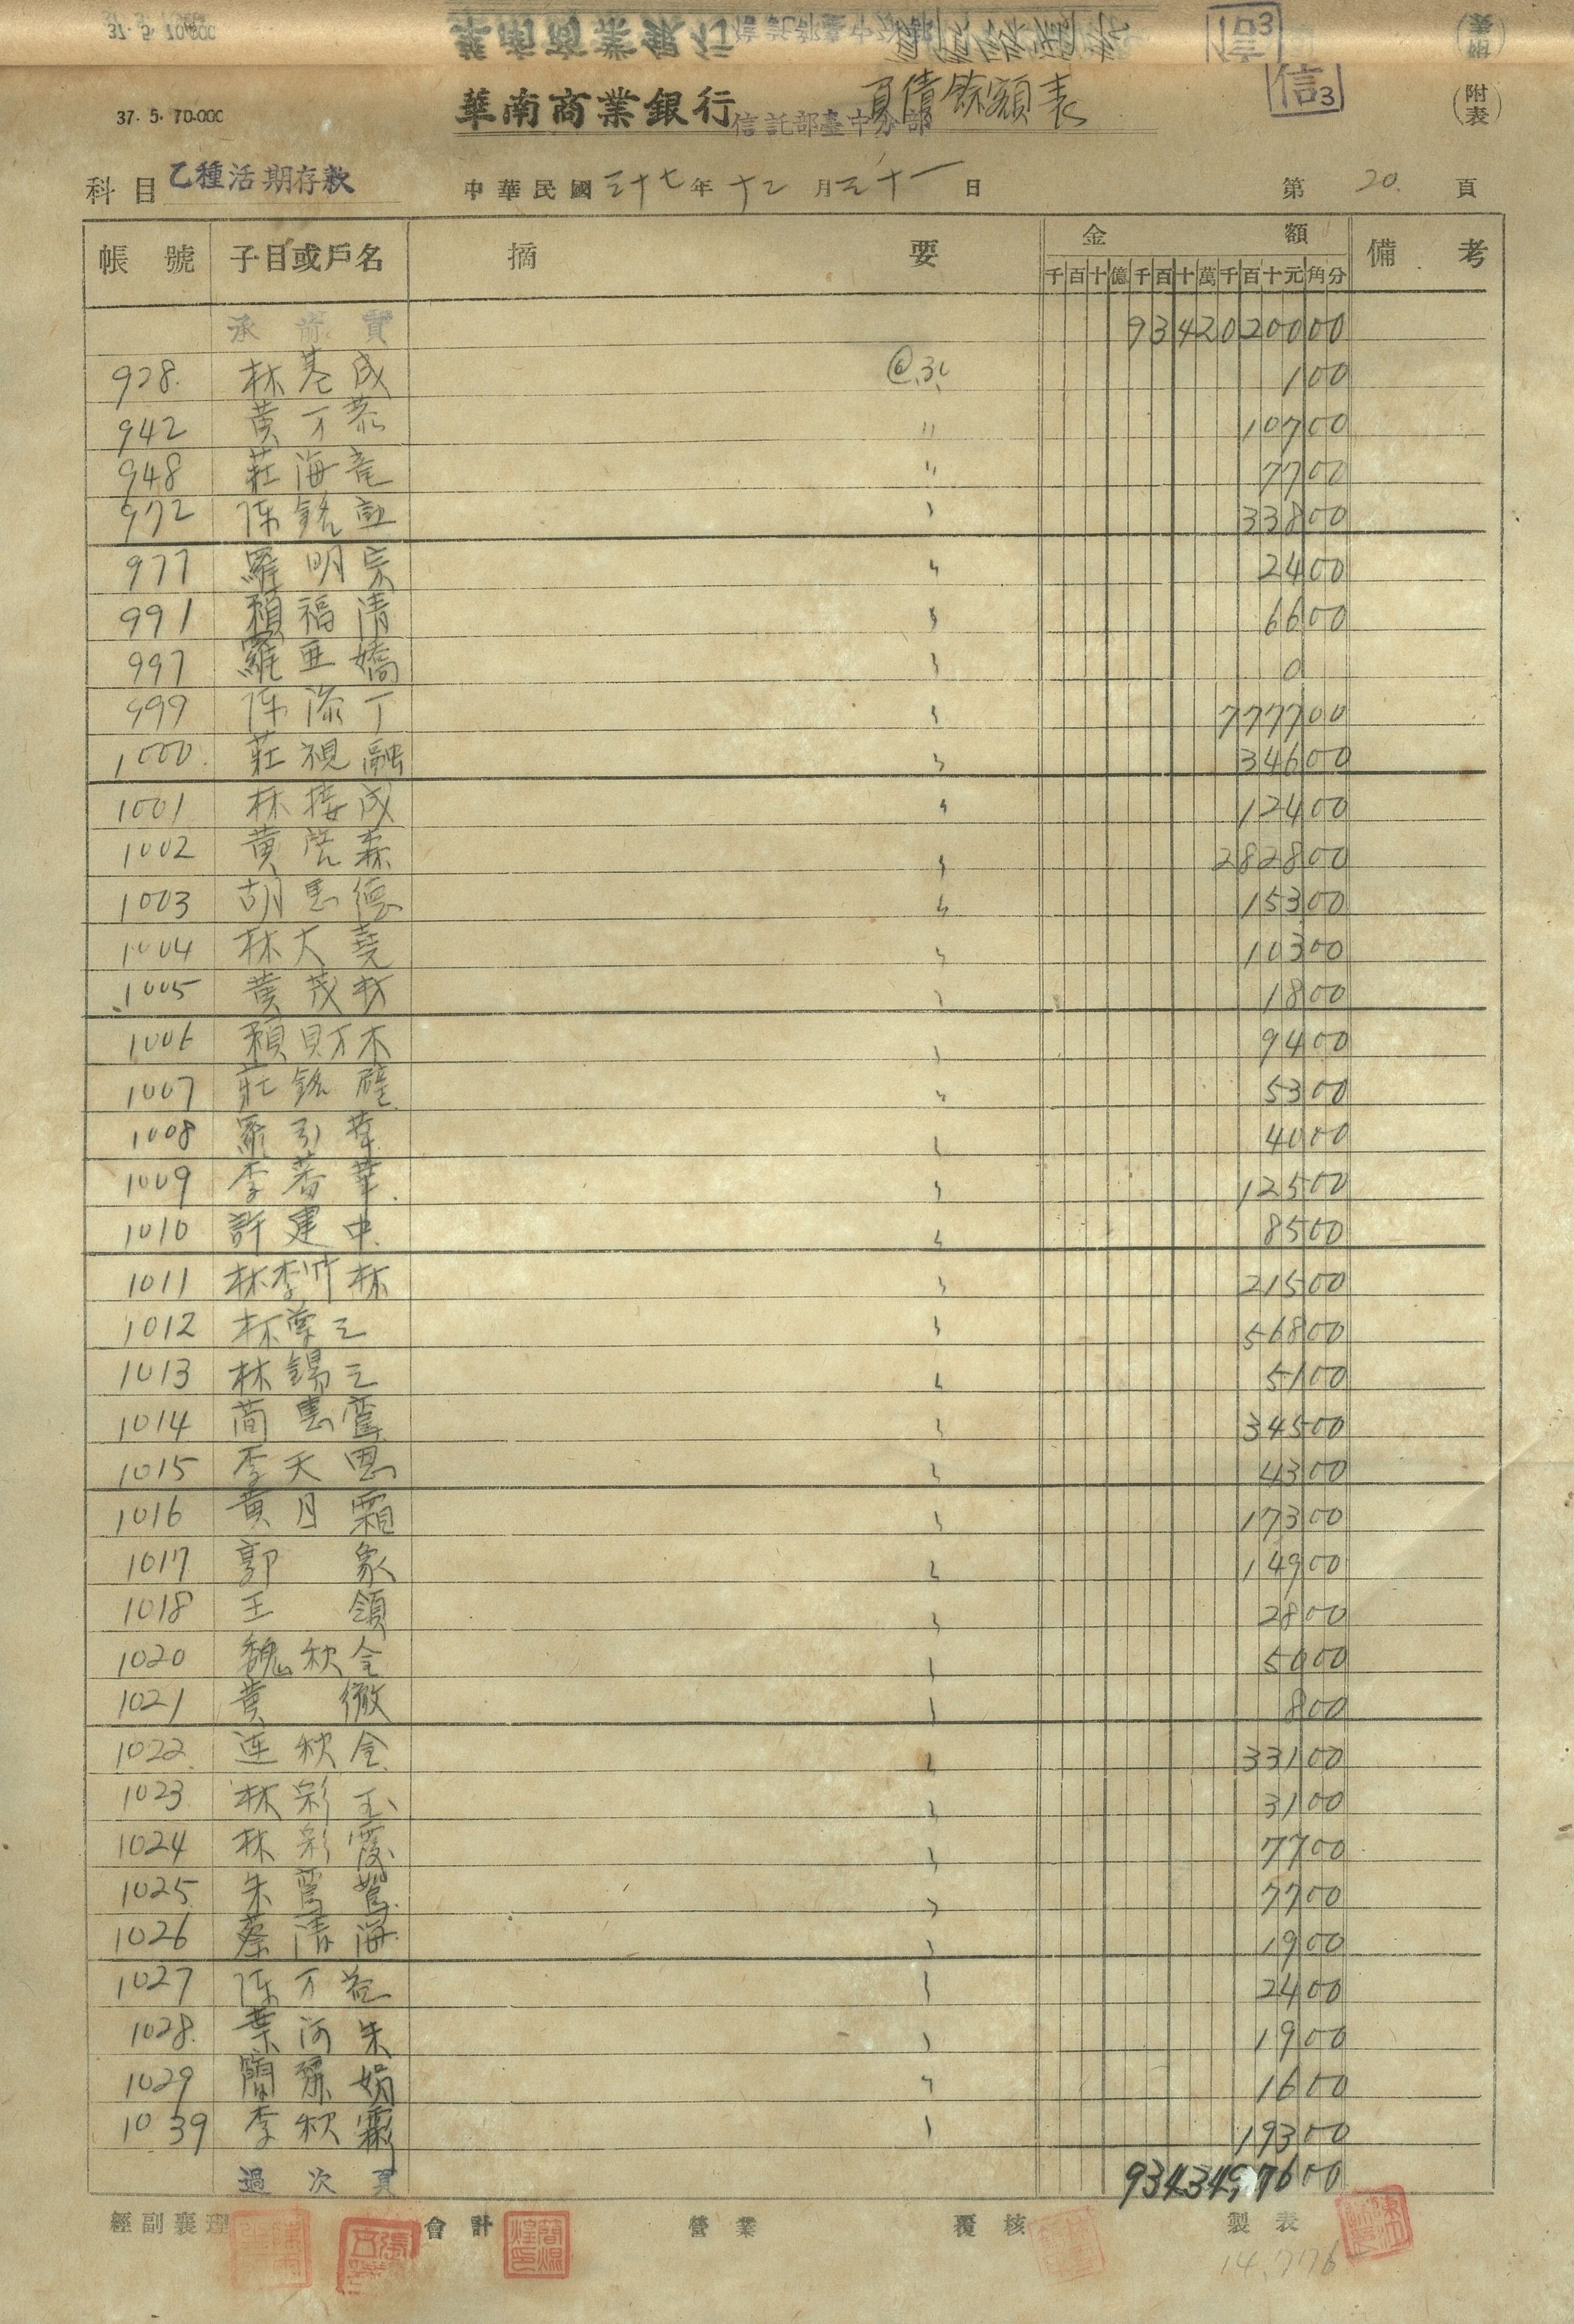 37. 5. 70.000
華南商業銀行 信託部臺中分部 負債餘額表
信3
(附表)
科目 乙種活期存款 中華民國三十七年十二月三十一日 第20.頁
帳號 子目或戶名 摘要 金額 備考
千百十億千百十萬千百十元角分
承前頁 9342020000
928. 林 成 @3 100
942 黃万恭 〃 10700
948 莊海竜 〃 7700
972 陈銘 33800
977 羅明宗 2400
991 賴福清 6600
997 羅亜嬌 0
999 陈添丁 777700
1000. 莊視融 34600
1001 林接成 12400
1002 黃 森 282800
1003 胡惠德 15300
1004 林大堯 10300
1005 黃茂林 1800
1006 賴財木 9400
1007 莊銘 5300
1008 羅引華 4000
1009 李蕃華 12500
1010 許建中 8500
1011 林李竹林 21500
1012 林尊三 56800
1013 林錫三 5100
1014 簡惠鶯 34500
1015 李天恩 4300
1016 黃月霜 17300
1017 郭象 14900
1018 王領 2800
1020 魏秋金 5000
1021 黃徹 800
1022. 连秋金 33100
1023 林彩玉 3100
1024 林彩霞 7700
1025 朱鴛鴦 7700
1026 蔡清海 1900
1027 陈万益 2400
1028. 葉河朱 1900
1029 簡 娟 1600
1039 李秋霖 19300
過次頁 9343497600
經副襄理 會計 營業 覆核 製表
14,776